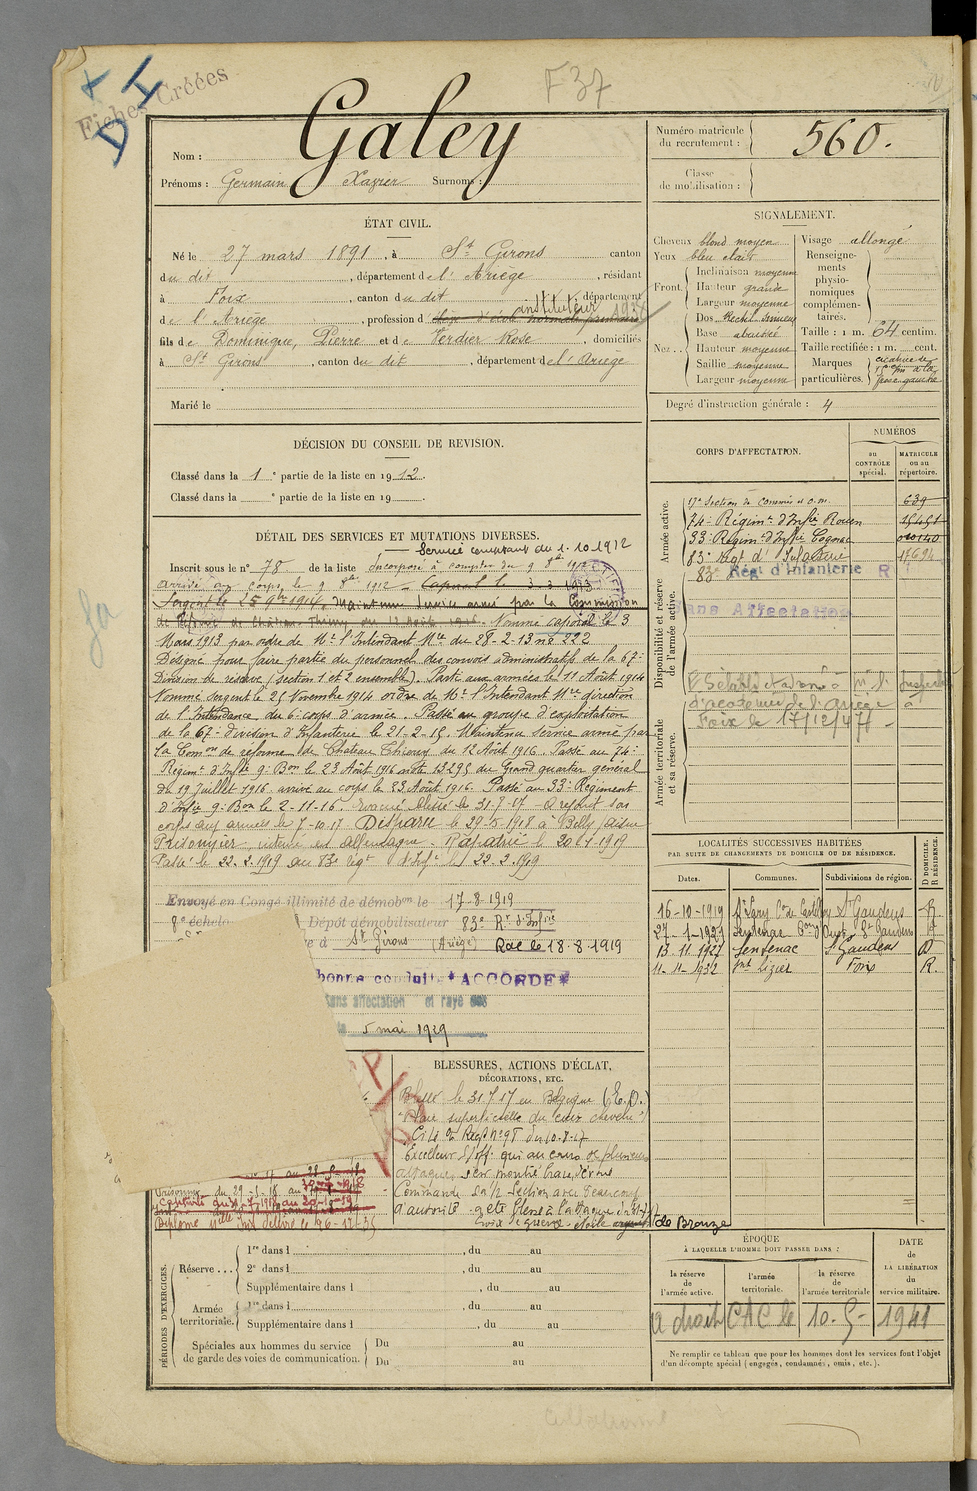 F 37
Fiches Créées
D I
Nom : Galey
Prénoms : Germain Xavier Surnoms :
Numéro matricule du recrutement : 560.
Classe de mobilisation :
ÉTAT CIVIL.
Né le 27 mars 1891, à St Girons canton
du dit, département de l'Ariège, résidant
à Foix, canton du dit, département
de l'Ariège, profession d instituteur 1934
fils de Dominique, Pierre et de Verdier Rose, domiciliés
à St Girons, canton du dit, département de l'Ariège
Marié le
SIGNALEMENT.
Cheveux blond moyen
Yeux bleu clair
Front. Inclinaison moyenne
Hauteur grande
Largeur moyenne
Nez. Dos Rectil. sinueux
Base abaissé
Hauteur moyenne
Saillie moyenne
Largeur moyenne
Visage allongé
Renseignements physionomiques complémentaires.
Taille : 1 m. 64 centim.
Taille rectifiée : 1 m. cent.
Marques particulières. cicatrice de
Degré d'instruction générale : 4
DÉCISION DU CONSEIL DE RÉVISION.
Classé dans la 1e partie de la liste en 1912.
Classé dans la e partie de la liste en 19 .
DÉTAIL DES SERVICES ET MUTATIONS DIVERSES.
Service comptant du 1.10.1912
Inscrit sous le n° 78 de la liste Incorporé à compter du 9 8bre 1912
arrivé au corps le 9 8bre 1912 – Caporal le 3.3.1913
Sergent le 25 9bre 1914. Maintenu service armé par la Commission
de Réforme de Château-Thierry du 12 Août 1916. Nommé caporal le 3
Mars 1913 par ordre de Mr l'Intendant Mre du 28-2-13 no 222
Désigné pour faire partie du personnel des convois administratifs de la 67e
Division de réserve (section 1 et 2 ensemble). Passé aux armées le 11 Août 1914
Nommé sergent le 25 Novembre 1914 ordre de Mr l'Intendant Mre direction
de l'Intendance du 6e corps d'armée. Passé au groupe d'exploitation
de la 67e division d'Infanterie le 21-2-15. Maintenu service armé par
la Comon de réforme de Château Thierry du 12 Août 1916. Passé au 74e
Régimt d'Inftie 9e Bon le 23 Août 1916 note 13295 du Grand quartier général
du 19 Juillet 1916. arrivé au corps le 23 Août 1916. Passé au 33e Régiment
d'Inftie 9e Bon le 2-11-16. Evacué blessé le 31-7-17 – a rejoint son
corps aux armées le 7-10-17 Disparu le 29-5-1918 à Billy /Aisne
Prisonnier, interné en Allemagne. Rapatrié le
Passé le 22.2.1919 au 83e Régt d'Infie le 22.2.1919
Envoyé en Congé illimité de démobon le 17-8-1919
8e échelon Dépôt démobilisateur 83e Rt d'Infrie
St Girons (Ariège) Rac le 18-8-1919
bonne conduite *ACCORDE*
sans affectation et rayé des
5 mai 1929
CORPS D'AFFECTATION.
NUMÉROS
au CONTRÔLE spécial.
MATRICULE ou au répertoire.
Armée active.
17e Section de Commis et o.m. 639
74e Régimt d'Inftie Rouen 15451
33e Régimt d'Inftie Cognac
83e Régt d'Infanterie 17694
Disponibilité et réserve de l'armée active.
83e Régt d'Infanterie R
Sans Affectation
Armée territoriale et sa réserve.
d'académie de l'Ariège à
Foix le 17/12/47
LOCALITÉS SUCCESSIVES HABITÉES
PAR SUITE DE CHANGEMENTS DE DOMICILE OU DE RÉSIDENCE.
Dates. Communes. Subdivisions de région. D DOMICILE. R RÉSIDENCE.
16-10-1919 St Lary St Gaudens R.
27-1-1921 Sentenac St Gaudens
13.11.1927 Sentenac St Gaudens D
11-11-1932 St Lizier Foix R.
BLESSURES, ACTIONS D'ÉCLAT,
DÉCORATIONS, ETC.
Blessé le 31.7.17 en Belgique (E.O.)
"Plaie superficielle du cuir chevelu"
Cité O. Régt No 98 du 10-8-17
Excellent s/off. qui au cours de plusieurs
attaques s'est montré
Commande sa 1/2 section avec beaucoup
d'autorité – a été blessé à l'attaque du 31-7-17
Croix de guerre – étoile de Bronze
Prisonnier du 29-5-18 au
Captivité du
Diplôme délivré le 26-12-35
PÉRIODES D'EXERCICES.
Réserve... 1re dans l , du au
2e dans l , du au
Supplémentaire dans l , du au
Armée territoriale. 1re dans l , du au
Supplémentaire dans l , du au
Spéciales aux hommes du service de garde des voies de communication. Du au
Du au
ÉPOQUE
À LAQUELLE L'HOMME DOIT PASSER DANS :
la réserve de l'armée active.
l'armée territoriale.
la réserve de l'armée territoriale
DATE de LA LIBÉRATION du service militaire.
a droit CAC le 10-5-1941
Ne remplir ce tableau que pour les hommes dont les services font l'objet
d'un décompte spécial (engagés, condamnés, omis, etc.).